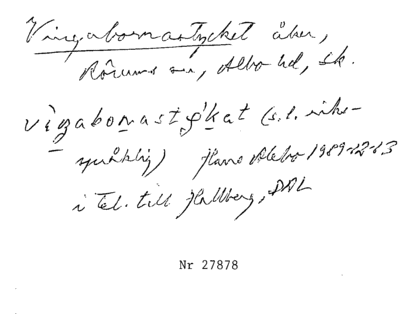 Vingabornastycket åker,
Rörums sn, Albo hd, Sk.
vìŋabo̱rnastyˈkat (s.l. riks-
språklig) Hans Alebo 1989-12-13
i tel. till Hallberg, DAL
Nr 27878